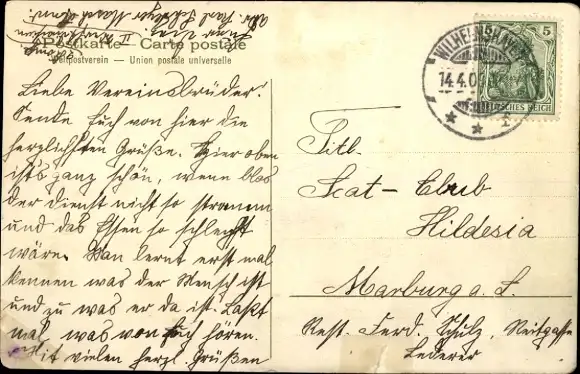 Postkarte — Carte postale
Weltpostverein — Union postale universelle
Liebe Vereinsbrüder!
Sende Euch von hier die
herzlichsten Grüße. Hier oben
ist's ganz schön, wenn blos
der Dienst nicht so stramm
und das Essen so schlecht
wäre. Man lernt erst mal
kennen was der Mensch ist
und zu was er da ist. Laßt
mal was von Euch hören.
Mit vielen herzl. Grüßen
WILHELMSHAVEN
14.4.0
5
DEUTSCHES REICH
Titl.
Scat-Club
Hildesia
Marburg a. L.
Rest. Ferd. Schulz, Reitgasse
Lederer